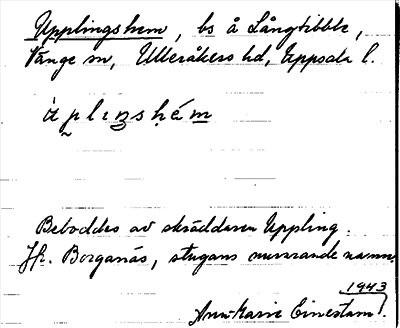 Upplingshem, bs å Långtibble,
Vänge sn, Ulleråkers hd, Uppsala l.
Beboddes av skräddaren Uppling.
Jfr. Borganäs, stugans nuvarande namn.
1943
Ann-Karie Einestam.